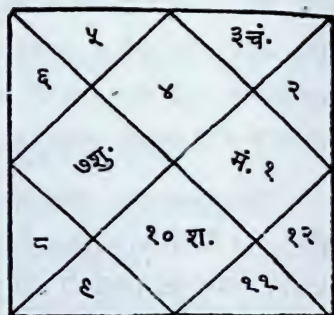 ५ ३ चं.
६ ४ २
७ शु. मं. १
८ १० श. १२
९ ११